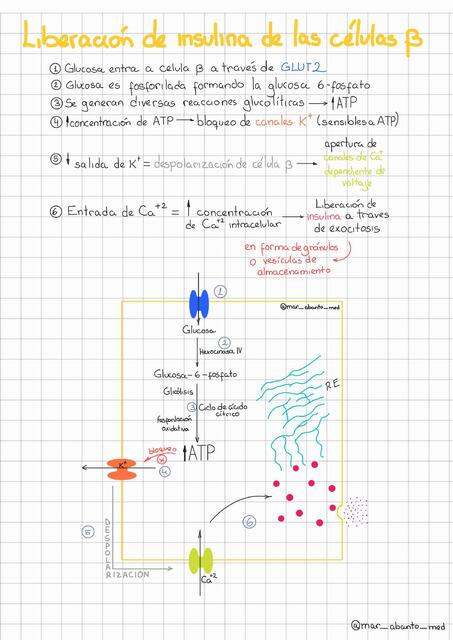 Liberación de insulina de las células β
① Glucosa entra a célula β a través de GLUT2
② Glucosa es fosforilada formando la glucosa 6-fosfato
③ Se generan diversas reacciones glucolíticas → ↑ATP
④ ↑concentración de ATP → bloqueo de canales K⁺ (sensibles a ATP)
⑤ ↓ salida de K⁺ = despolarización de célula β → apertura de
canales de Ca⁺
dependiente de
voltaje
⑥ Entrada de Ca⁺² = ↑ concentración
de Ca⁺² intracelular → Liberación de
insulina a traves
de exocitosis
en forma de gránulos
o vesículas de
almacenamiento
①
@mar_abanto_med
Glucosa
②
Hexocinasa IV
Glucosa-6-fosfato
Glicólisis
③ Ciclo de ácido
cítrico
Fosforilación
oxidativa
R.E
↑ATP
bloqueo
K⁺
④
⑤
DESPOLARIZACION
⑥
Ca⁺²
@mar_abanto_med